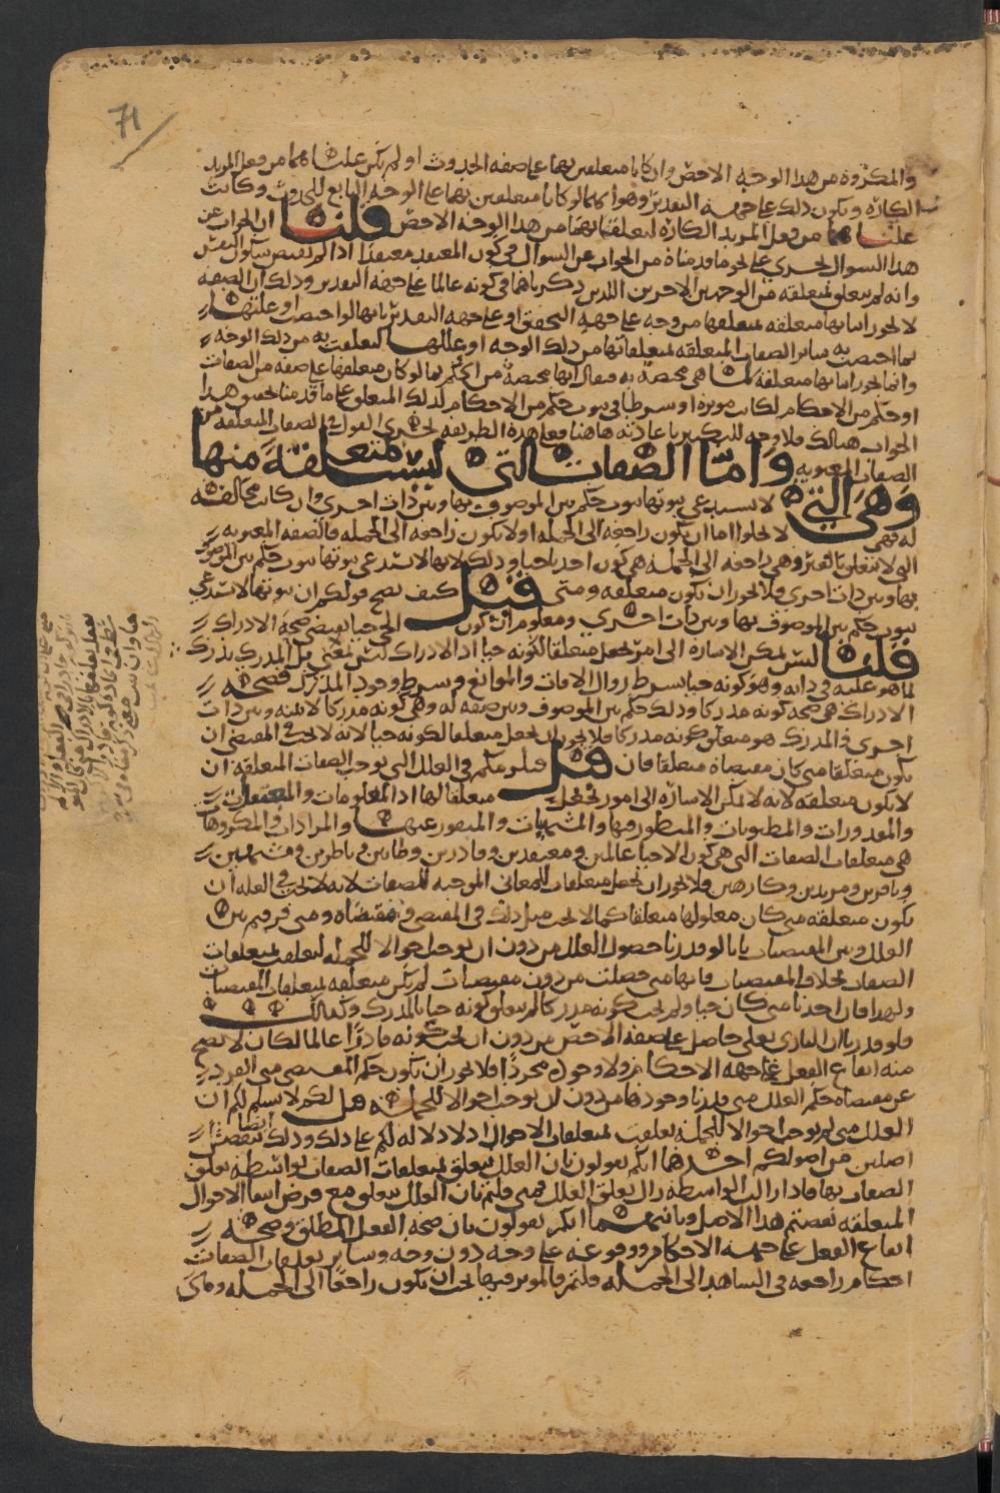 71
والمكروه من هذا الوجه الاخص وان كانا متعلقين بهما على صفه الحدوث او لم تكن علتاهما من فعل المريد
الكاره ويكون ذلك على جهه التقدير وهو انهما لو كانا متعلقين بهما على الوجه التابع للحدوث وكانت
علتاهما من فعل المريد الكاره لتعلقتا بهما من هذا الوجه الاخص قلنا ان الجواب عن
هذا السوال يجري على نحو ما قدمناه من الجواب عن السوال في كون المعتقد معتقدا اذا لم
وانه لم يتعلق بمتعلقه من الوجهين الاخرين اللذين ذكرناهما في كونه عالما على جهه التقدير وذلك ان الصفه
لا يجوز اثباتها متعلقه بمتعلقها من وجه على جهه التحقيق او على جهه التقدير بانها لو اختصت او علتها
بما اختصت به سائر الصفات المتعلقه بمتعلقاتها من ذلك الوجه او عللها لتعلقت به من ذلك الوجه
وانما يجوز اثباتها متعلقه لما هي مختصه به فيقال انها مختصه من الحكم بما لو كان متعلقها على صفه من الصفات
او حكم من الاحكام لكانت موثره او شرطا في ثبوت حكم من الاحكام لذلك المتعلق على ما قدمنا تحقيق هذا
الجواب هنالك فلا وجه للتكثير باعادته هاهنا فعلى هذه الطريقه يجري القول في الصفات المتعلقه من
الصفات المعنويه واما الصفات التي ليست متعلقه منها
وهي التي لا تستدعي ثبوتها ثبوت حكم بين الموصوف بها وبين ذات اخرى وان كانت مخالفه
له فهي لا تخلوا اما ان تكون راجعه الى الجمله او لا تكون راجعه الى الجمله فالصفه المعنويه
التي لا تتعلق بالغير وهي راجعه الى الجمله هي كون احدنا حيا وذلك لانها لا تستدعي ثبوتها ثبوت حكم بين الموصوف
بها وبين ذات اخرى فلا يجوز ان تكون متعلقه ومتى قيل كيف يصح قولكم ان ثبوتها لا تستدعي
ثبوت حكم بين الموصوف بها وبين ذات اخرى ومعلوم ان كون الحي حيا يقتضي صحه الادراك
قلنا ليس يمكن الاشاره الى امر يجعل متعلقا لكونه حيا اذ الادراك ليس بمعنى بل المدرك يدرك
لما هو عليه في ذاته وهو كونه حيا بشرط زوال الافات والموانع وشرط وجود المدرك فصحه
الادراك هي صحه كونه مدركا وذلك حكم بين الموصوف وبين صفه له وهي كونه مدركا لا بينه وبين ذات
اخرى والمدرك هو متعلق كونه مدركا فلا يجوز ان يجعل متعلقا لكونه حيا لانه لا يجب في المقتضي ان
يكون متعلقا متى كان مقتضاه متعلقا فان قيل فيلزمكم في العلل التي توجب الصفات المتعلقه ان
لا تكون متعلقه لانه لا يمكن الاشاره الى امور تجعل متعلقا لها اذ المعلومات والمعتقدات
والمقدورات والمظنونات والمنظور فيها والمشتهيات والمنفور عنها والمرادات والمكروهات
هي متعلقات الصفات التي هي كون الاحيا عالمين ومعتقدين وقادرين وظانين وناظرين ومشتهين
ونافرين ومريدين وكارهين فلا يجوز ان تجعل متعلقات للمعاني الموجبه للصفات لانه لا يجب في العله ان
تكون متعلقه متى كان معلولها متعلقا كما لا يجب مثل ذلك في المقتضي ومقتضاه ومتى فرقتم بين
العلل وبين المقتضيات بانا لو قدرنا حصول العلل من دون ان توجب احوالا للجمله لتعلقت بمتعلقات
الصفات بخلاف المقتضيات فانها متى حصلت من دون مقتضيات لم تكن متعلقه بمتعلقات المقتضيات
ولهذا فان احدنا متى كان حيا ولم يجب كونه مدركا لم يتعلق كونه حيا بالمدرك وكذلك
فلو قدرنا ان الباري تعالى حاصل على صفه الاخص من دون ان يجب كونه قادرا عالما لكان لا يصح
منه ايقاع الفعل على جهه الاحكام ولا وجوده مجردا فلا يجوز ان يكون حكم المقتضي متى انفردت
عن مقتضاه حكم العلل متى قدرنا وجودها من دون ان توجب احوالا للجمل قيل لكم لا نسلم لكم ان
العلل متى لم توجب احوالا للجمله تعلقت بمتعلقات الاحوال اذ لا دلاله لكم على ذلك وذلك ينتقض
اصلين من اصولكم احدهما انكم تقولون بان العلل يتعلق بمتعلقات الصفات بواسطه تعلق
الصفات بها فاذا زالت الواسطه زال تعلق العلل فمتى قلتم بان العلل تتعلق مع فرض انتفا الاحوال
المتعلقه نقضتم هذا الاصل وثانيهما انكم تقولون بان صحه الفعل المطلق وصحه
ايقاع الفعل على جهه الاحكام ووقوعه على وجه دون وجه وسائر تعلقات الصفات
احكام راجعه في الشاهد الى الجمله قلتم فالموثر فيها يجب ان يكون راجعا الى الجمله ومتى